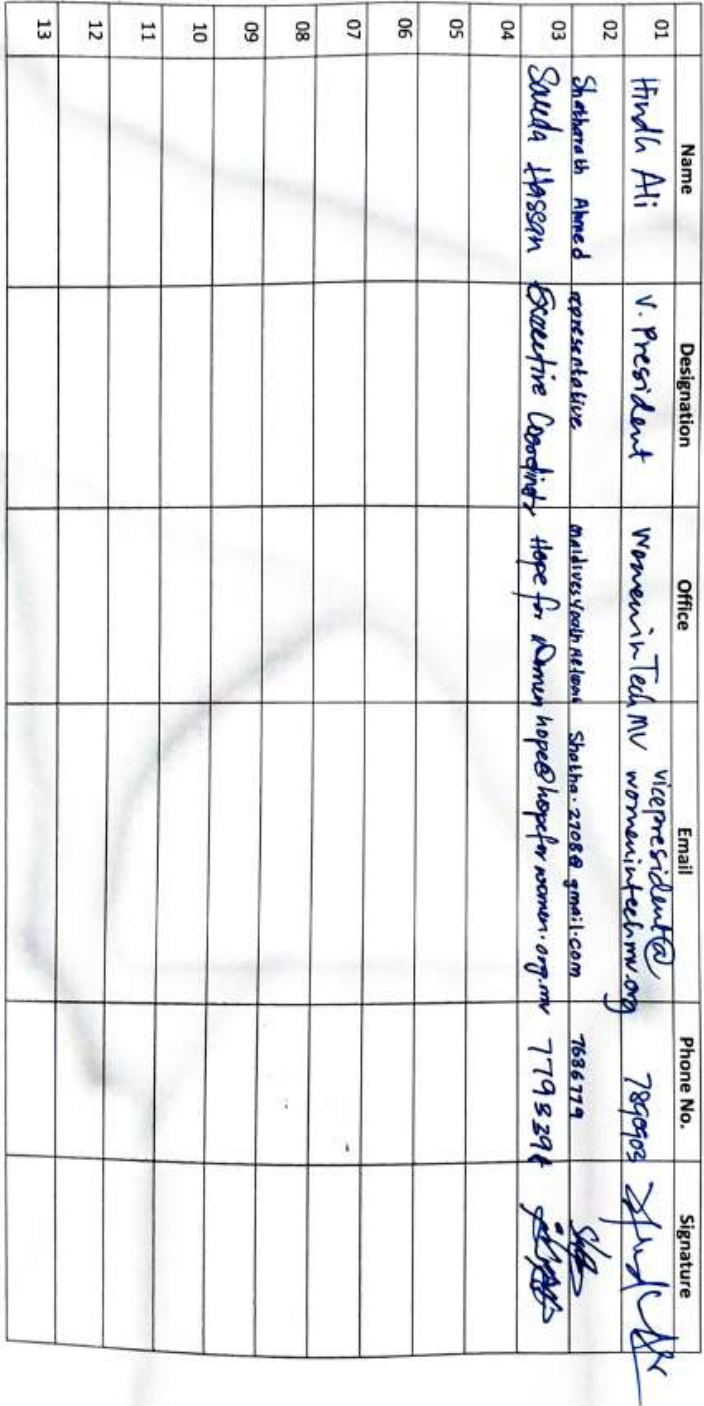 Name Designation Office Email Phone No. Signature
01 Hindh Ali V. President Women in Tech MV vicepresident@ womenintechmv.org 7890903
02 Ahmed representative maldives Youth Network Shatha.2708@gmail.com 7686779
03 Saeeda Hassan Executive Coordinator Hope for Women hope@hopeforwomen.org.mv
04
05
06
07
08
09
10
11
12
13